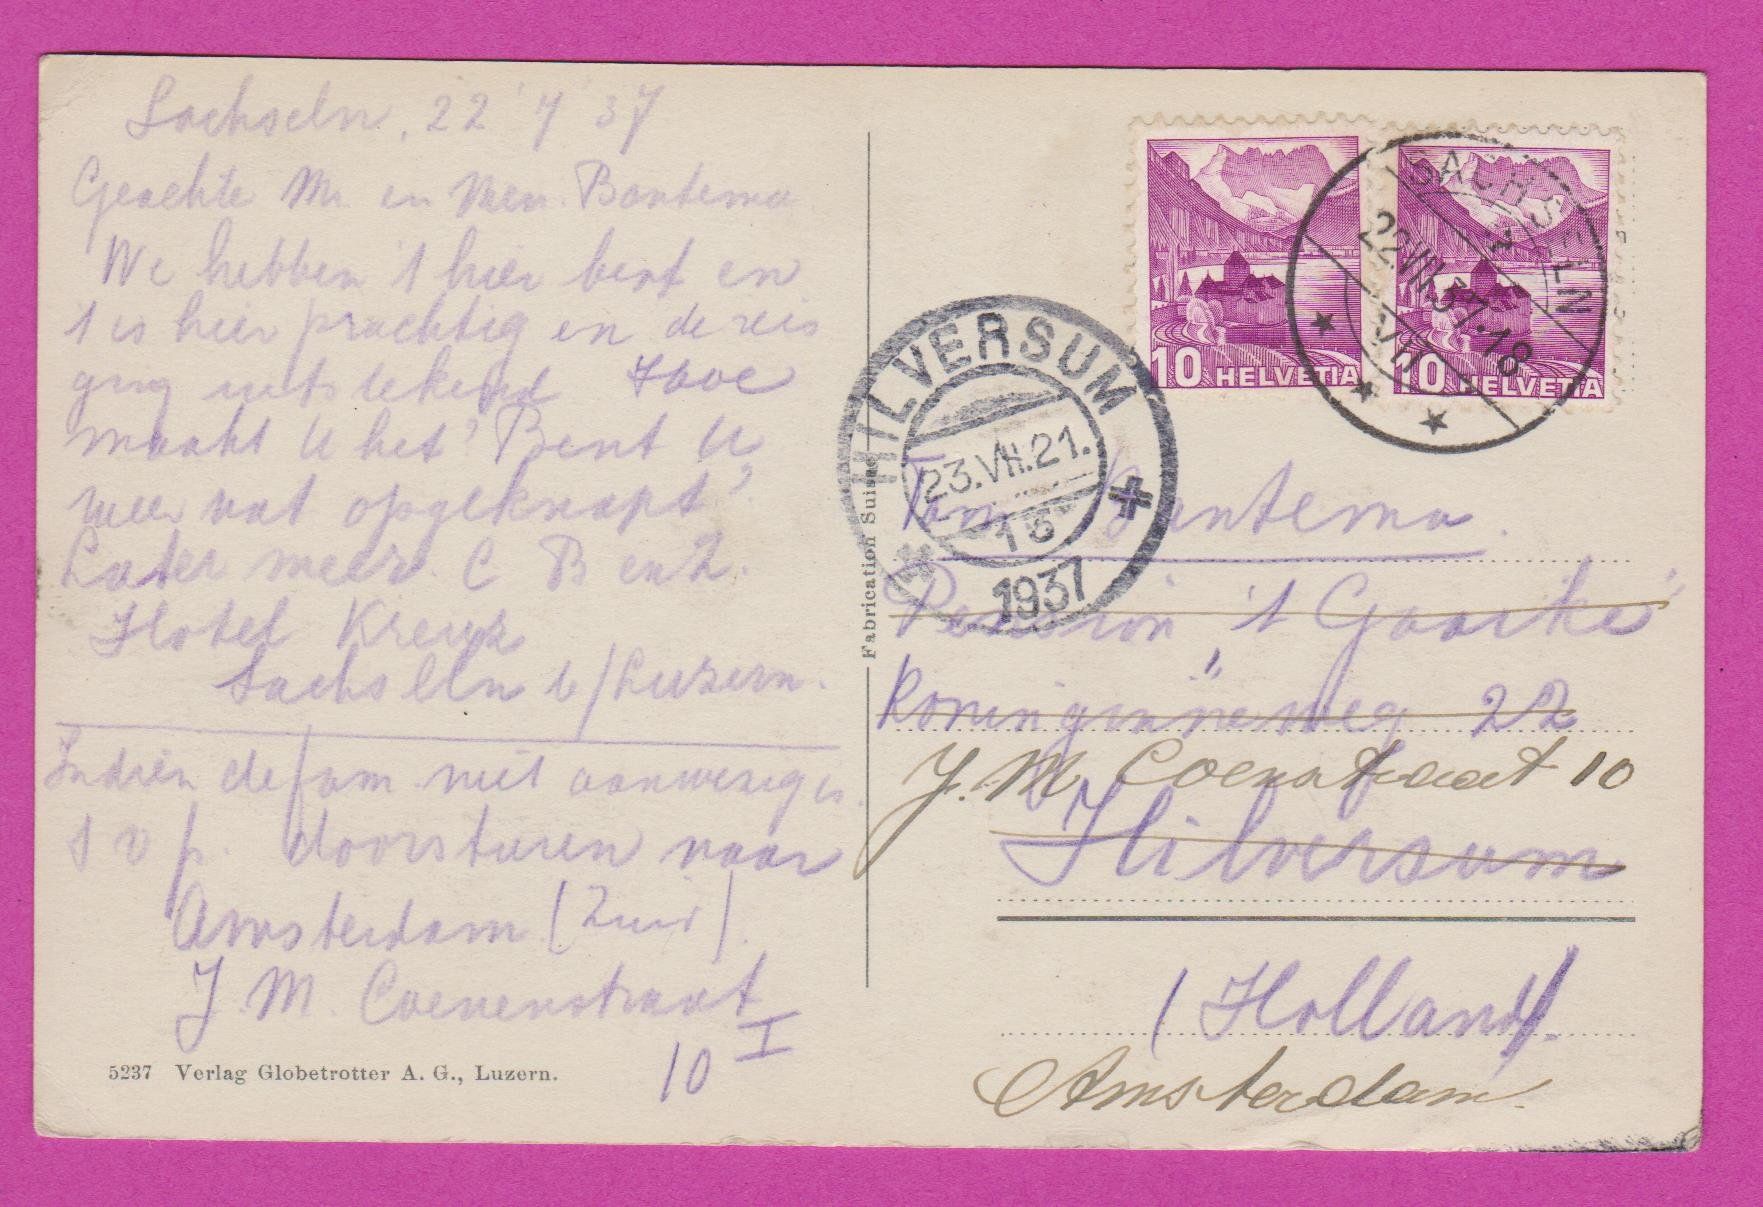 Sachseln, 22 '7 '37
Geachte Mr. en Mevr. Bantema
We hebben 't hier best en
't is hier prachtig en de reis
ging uitstekend Hoe
maakt U het? Bent U
weer wat opgeknapt?
Later meer. C B en Z.
Hotel Kreuz
Sachseln b/Luzern.
Indien de fam niet aanwezig is
s v p. doorsturen naar
Amsterdam (Zuid).
J. M. Coenenstraat
10 I
5237 Verlag Globetrotter A. G., Luzern.
Fabrication Suisse
10 HELVETIA
10 HELVETIA
SACHSELN
22.VII.37.18
HILVERSUM
23.VII.21.
1937
Fam Bantema.
Pension 't Gooike
Koninginneweg 22
J. M. Coenenstraat 10
Hilversum
(Holland).
Amsterdam.